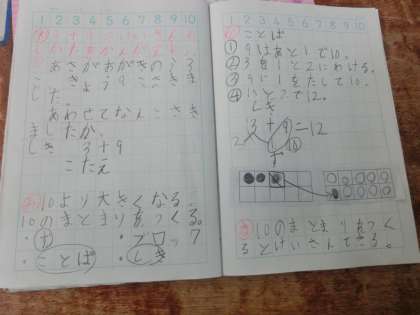 1 2 3 4 5 6 7 8 9 10
あさがおがきのう3
こ、きょう9こさきま
した。
あわせてなんこさき
ましたか。
しき 3+9
こたえ
10より大きくなる。
10のまとまりをつくる。
・ず ・ブロック
・ことば ・しき
1 2 3 4 5 6 7 8 9 10
ことば
① 9はあと1で10。
② 3を1と2にわける。
③ 9に1をたして10。
④ 10と2で12。
しき
3+9=12
2
10
ず
10のまとまりをつく
るとけいさんできる。